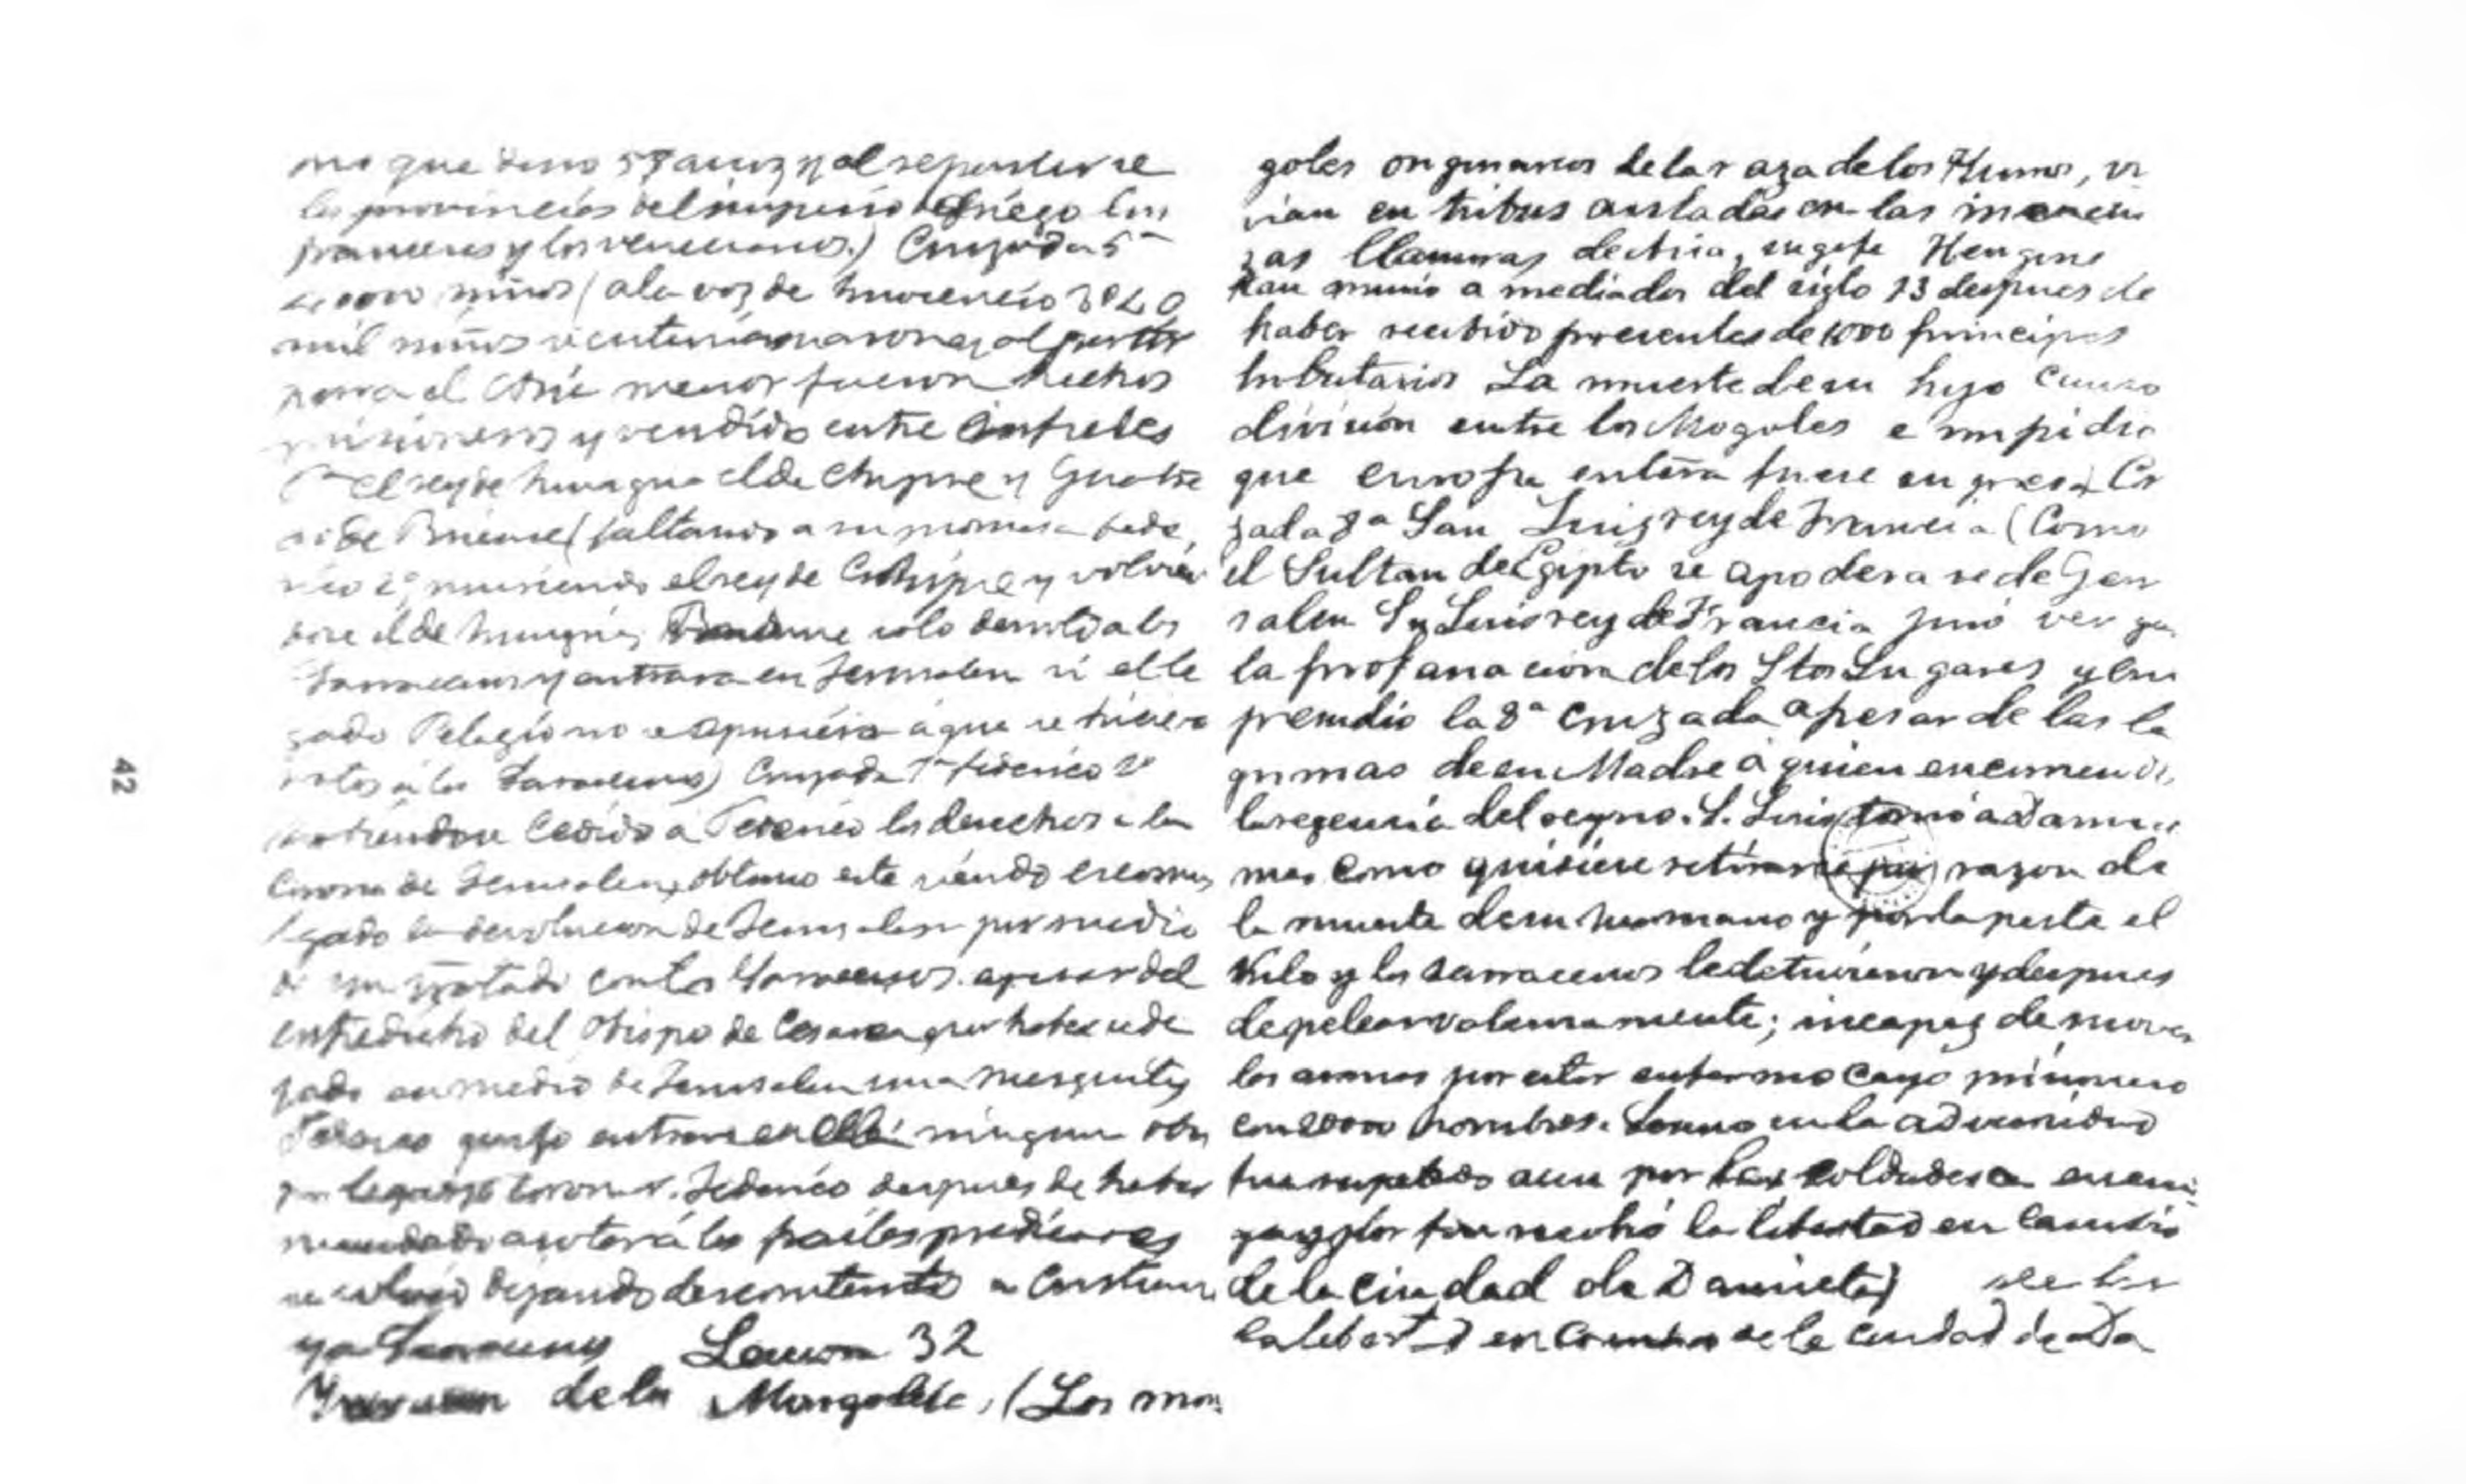 mo que duro 57 años y al repartirse
las provincias del imperio Griego los
franceses y los venecianos.) Cruzada 5ª
niños (a la voz de Inocencio 3º
mil niños y al partir
para el Asia menor fueron hechos
prisioneros y vendidos entre infieles
el rey de Hungria el de Chipre y
de Briene (faltando a su promesa Fede
rico 2º muriendo el rey de Chipre y volvien
dose el de Hungria, solo derrotó a los
Sarracenos y entrara en Jerusalen si el le
gado Pelagio no se opusiera á que se hiciera
á los Sarracenos) Cruzada 7ª Federico 2º
habiendose cedido a Federico los derechos a la
Corona de Jerusalen, obtuvo este siendo escomul
gado la devolucion de Jerusalen por medio
de un tratado con los Sarracenos. apesar del
entredicho del Obispo de Cesarea por haber de
jado en medio de Jerusalen una mesquita
Federico entrar en ella ningun obis
po le quiso coronar. Federico despues de haber
mandado azotar á los frailes predicares
se volvió dejando descontento a Cristian
y a Sarracenos Leccion 32
de la Mongolia, (Los mon
goles originarios de la raza de los Hunos, vi
vian en tribus aisladas en las inmen
zas llanuras de Asia, su gefe Hengins
Kan murió a mediados del siglo 13 despues de
haber recibido presentes de 1000 principes
tributarios La muerte de su hijo causo
división entre los Mogoles e impidio
que europa entera fuese su presa) Cr
zada 8ª San Luis rey de Francia (Como
el Sultan de Egipto se apodera se de Geru
salen Sn Luis rey de Francia juró vengar
la profanacion de los Stos Lugares y em
prendio la 8ª cruzada apesar de las la
grimas de su Madre á quien encomendó
la regencia del reyno. S. Luis tomó a Damie
mas como quisiese retirarse por razon de
la muerte de su hermano y por la peste el
Nilo y los sarracenos le detuvieron y despues
de pelear valerosamente; incapaz de mover
las armas por estar enfermo cayó prisionero
con 20000 hombres. en la adversidad
fue respetado aun por los soldadesca enemi
ga y por fin recibió la libertad en cambio
de la ciudad de Damieta)
la libertad en cambio de la ciudad de Da
42